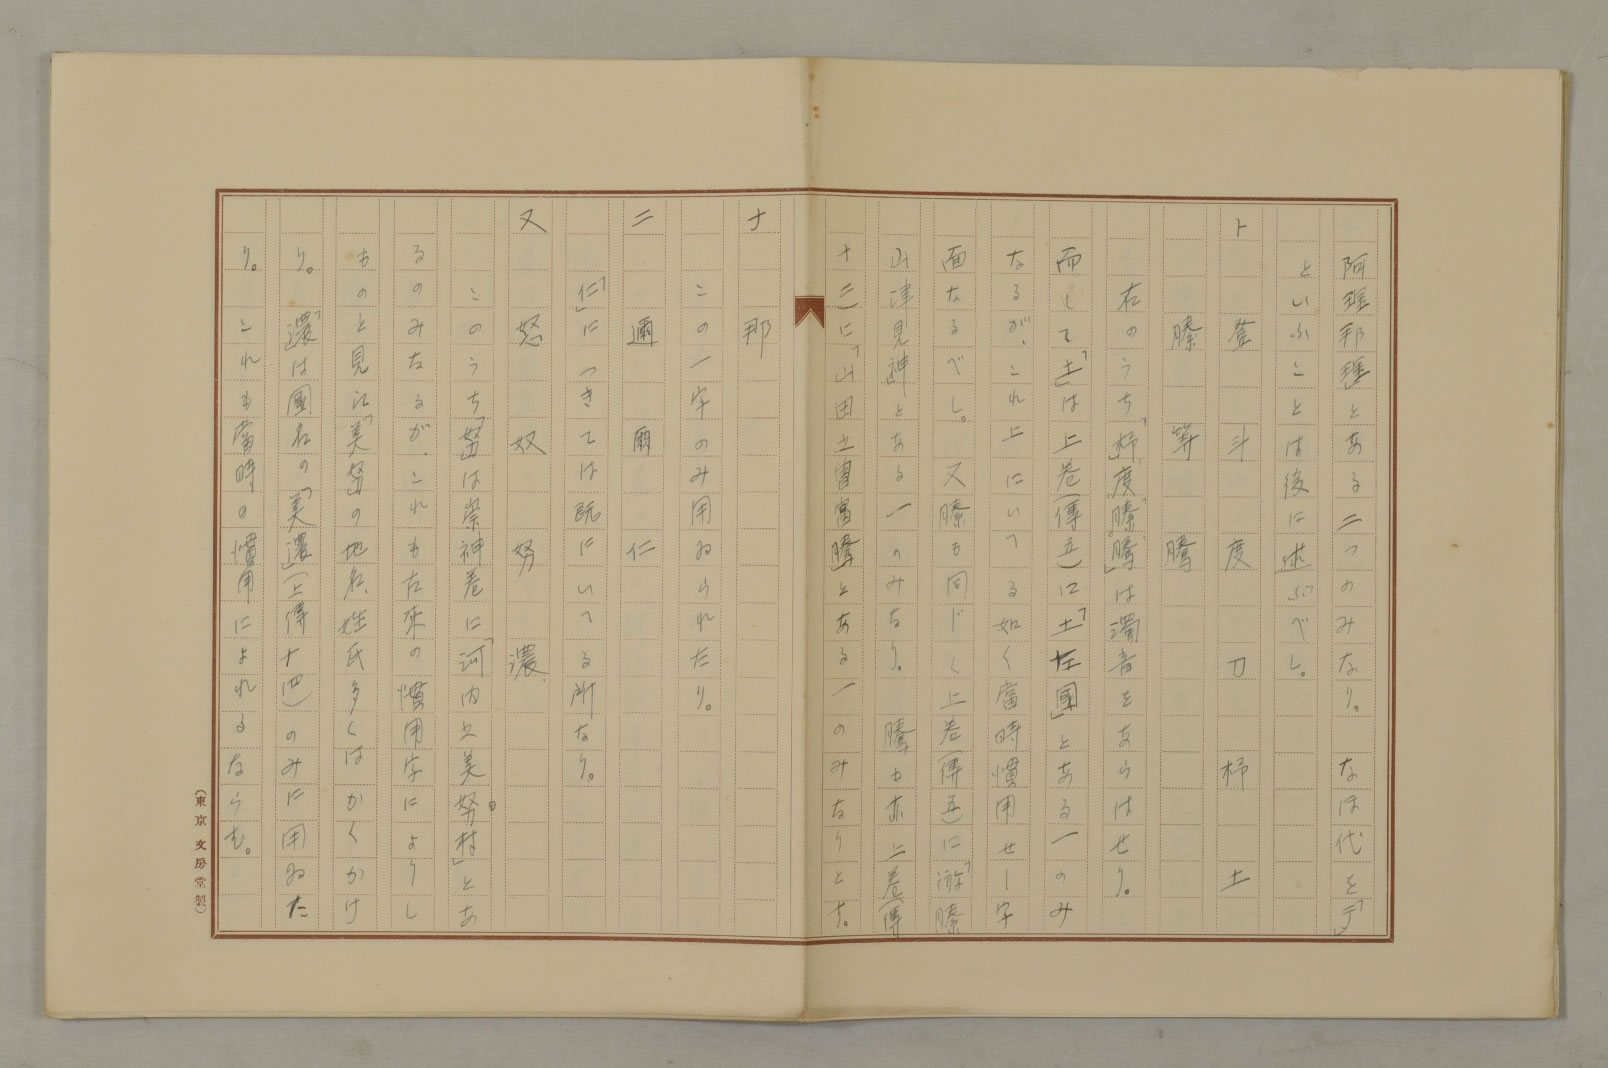 阿理那理」とある二つのみなり。なほ代を「デ」
といふことは後に述ぶべし。
ト　登　斗　度　刀　杼　土
縢　等　騰
右のうち「杼」「度」「縢」「騰」は濁音をあらはせり。
而して「土」は上巻(傳五)に「土左國」とある一のみ
なるが、これ上にいへる如く當時慣用せし字
面なるべし。又縢も同じく上巻(傳五)に「縢
山津見神」とある一のみなり。騰も亦上巻(傳
十二)に「山田之曾富騰」とある一のみなりとす。
ナ　那
この一字のみ用ゐられたり。
ニ　邇　爾　仁
「仁」につきては既にいへる所なり。
ヌ　怒　奴　努　濃
このうち「努」は崇神巻に「河内之美努村」とあ
るのみなるが、これも古來の慣用字によりし
ものと見え「美努」の地名、姓氏多くはかくかけ
り。「濃」は國名の「美濃」(上傳十四)のみに用ゐた
り。これも當時の慣用によれるならむ。
(東京 文房堂製)